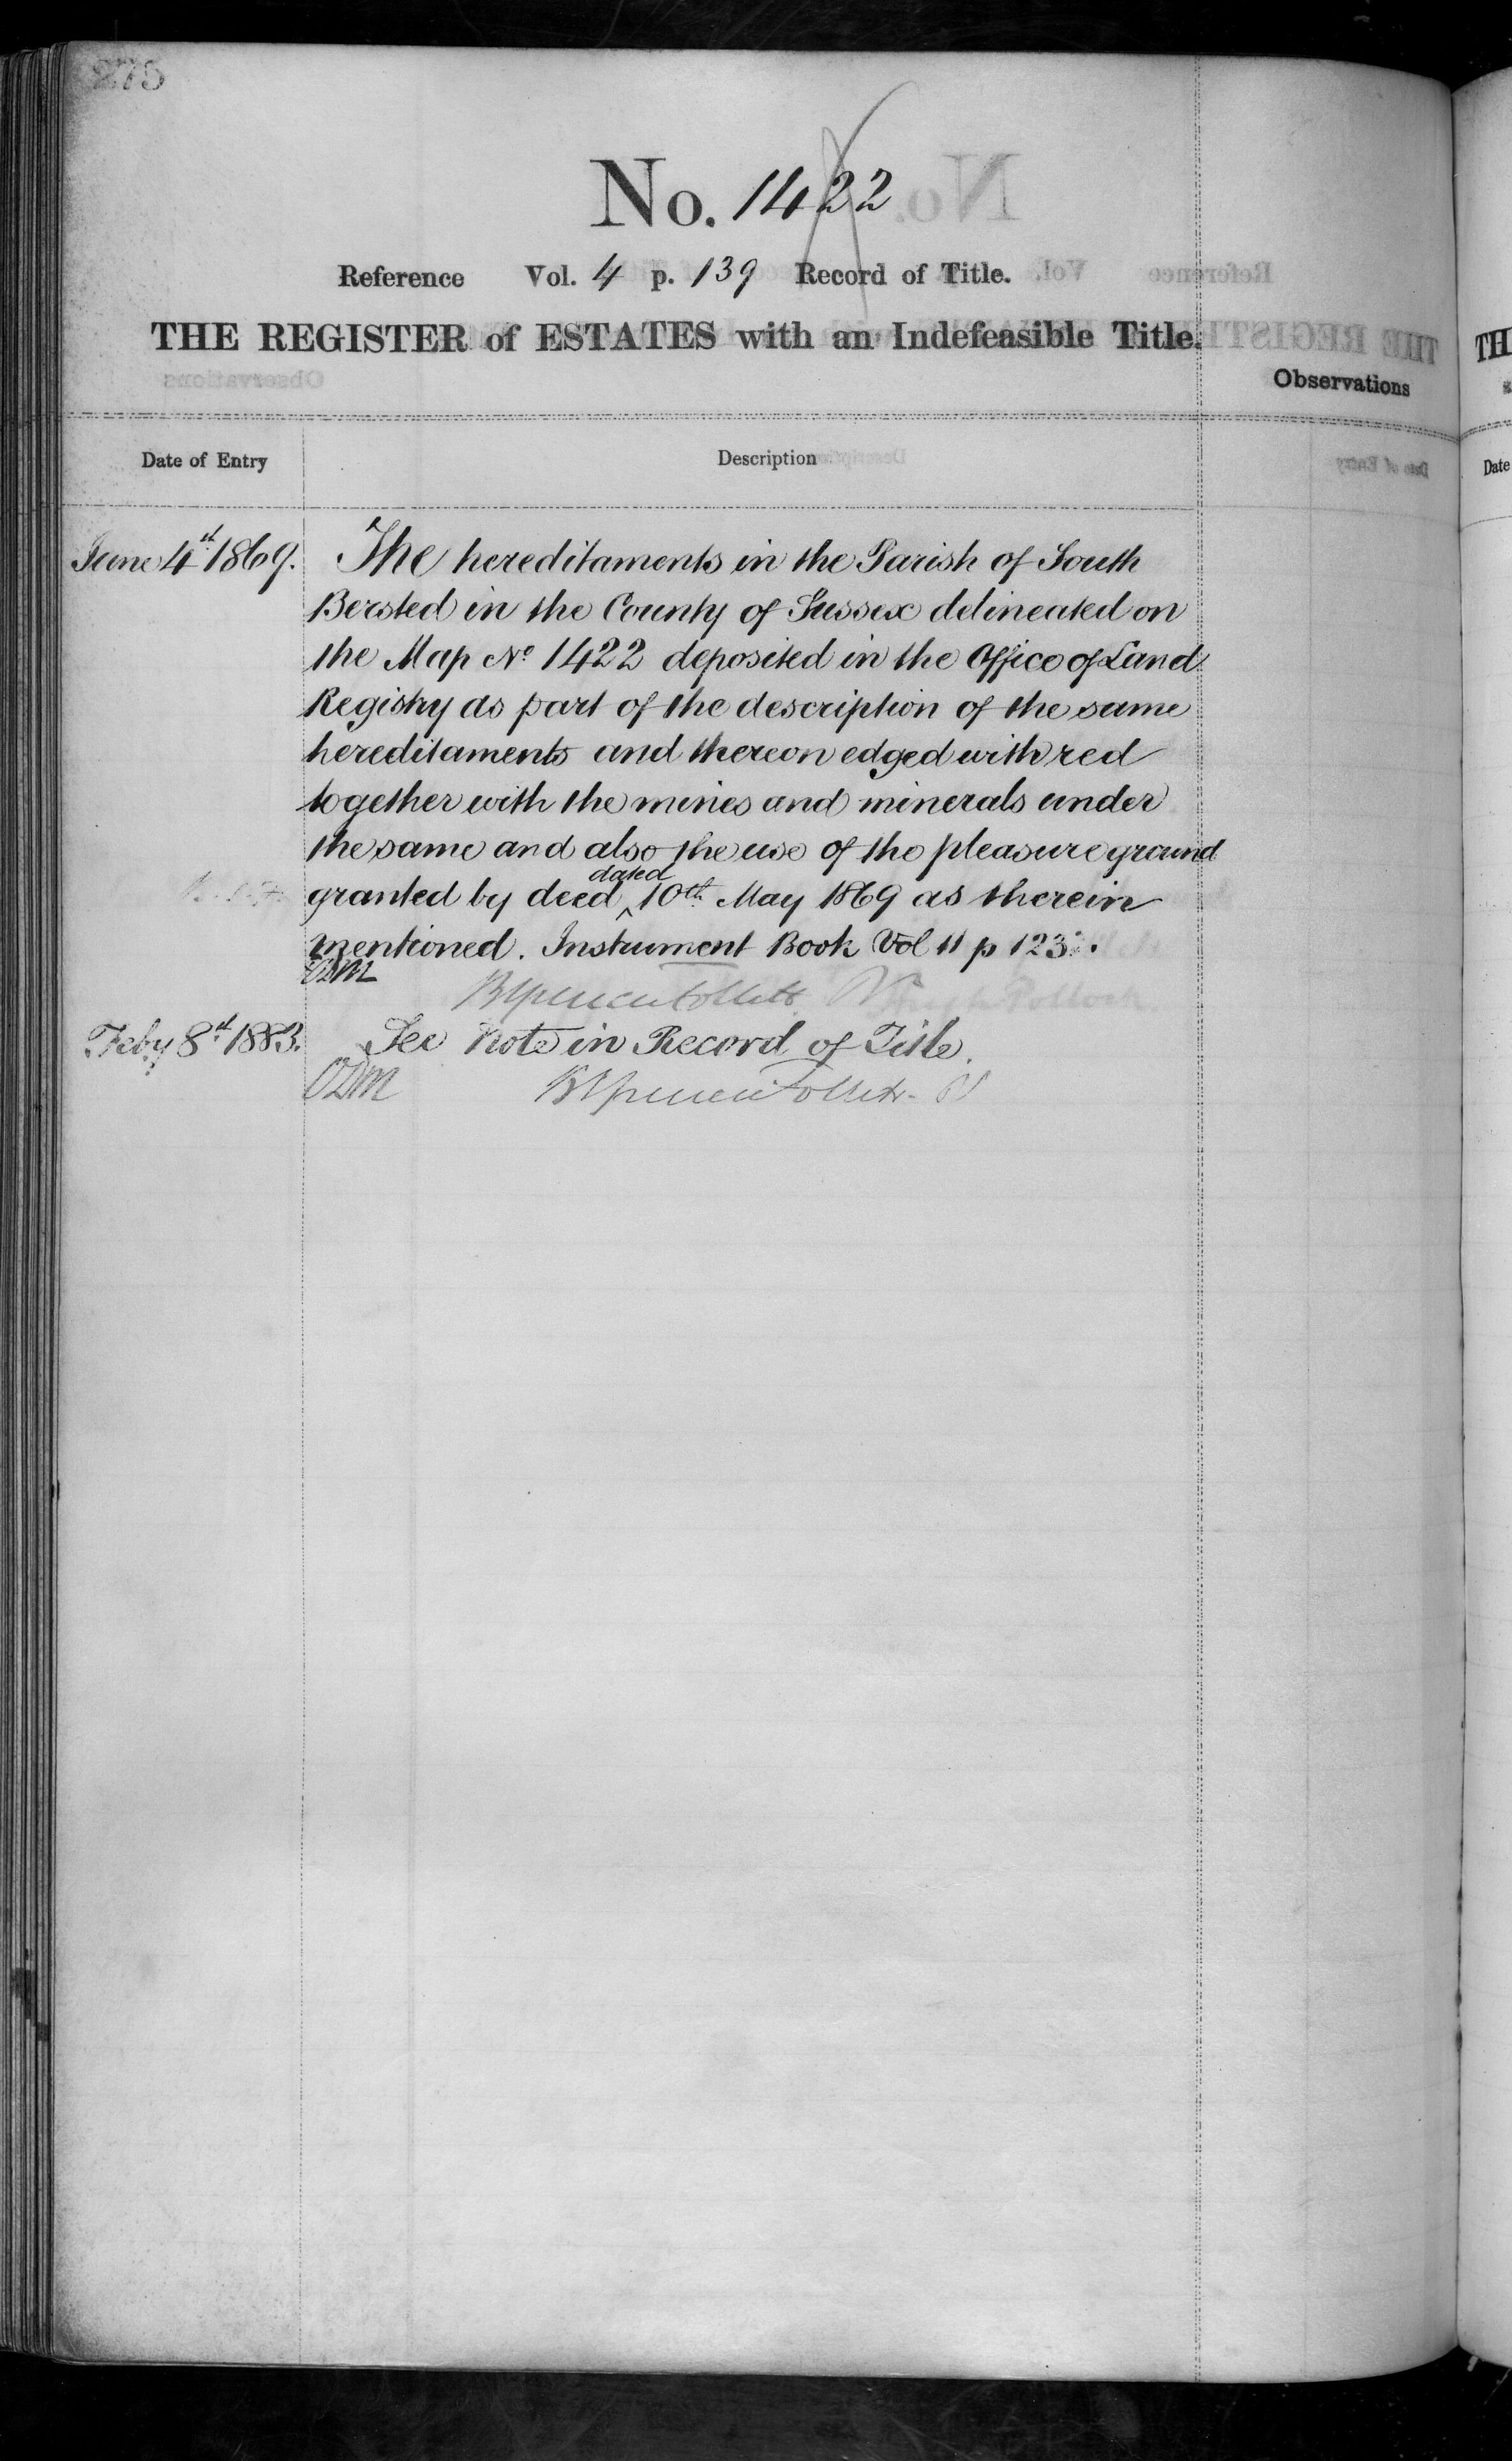 275
No. 1422
Reference Vol. 4 p. 139 Record of Title.
THE REGISTER of ESTATES with an Indefeasible Title.
Observations
Date of Entry
Description
June 4th 1869.
The hereditaments in the Parish of South
Bersted in the County of Sussex delineated on
the Map No 1422 deposited in the Office of Land
Registry as part of the description of the same
hereditaments and thereon edged with red
together with the mines and minerals under
the same and also the use of the pleasure ground
granted by deed dated 10th May 1869 as therein
mentioned. Instrument Book Vol 11 p 123.
Feby 8th 1883.
See Note in Record of Title.